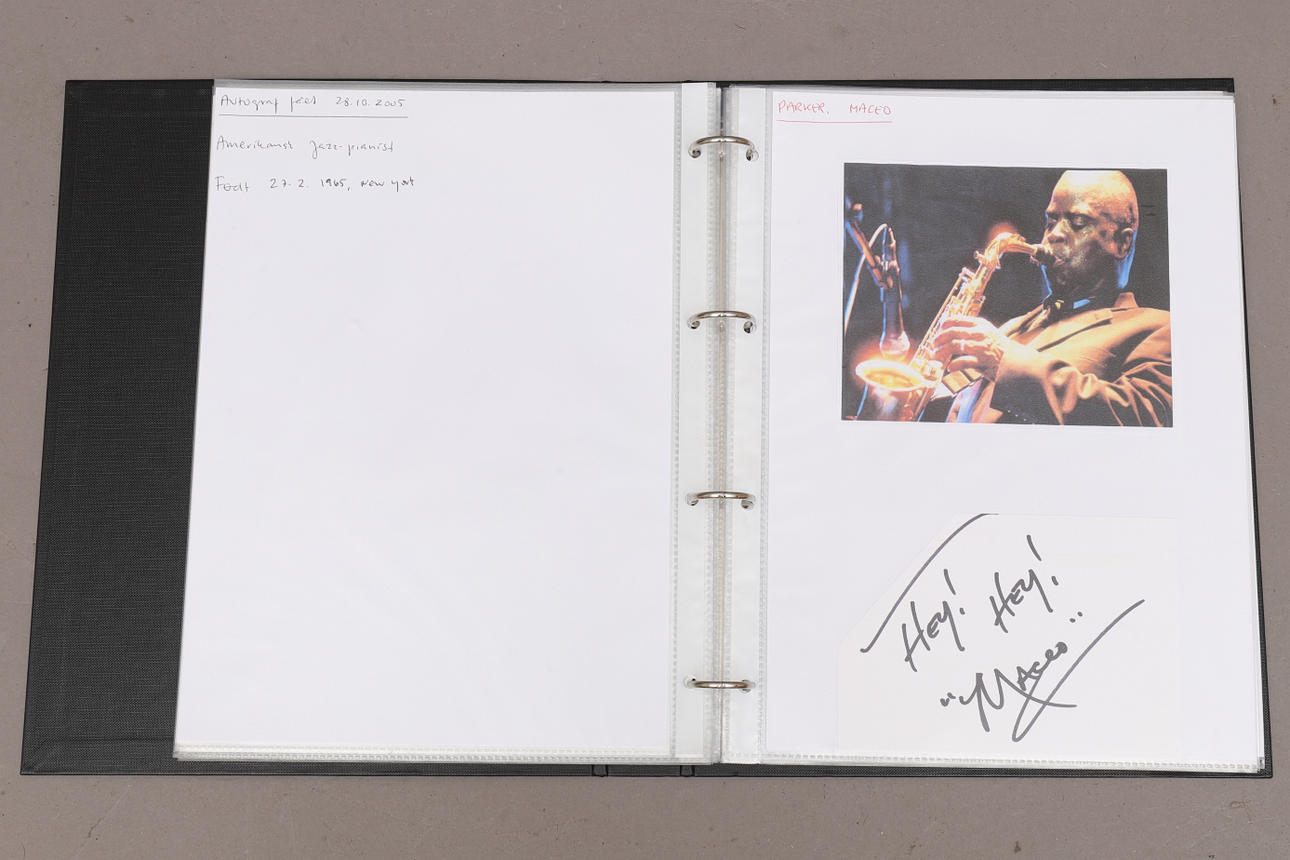 Autograf fået 28.10.2005
Amerikansk jazz-pianist
Født 27.2. 1965, New York
PARKER, MACEO
HEY! HEY!
"MACEO"